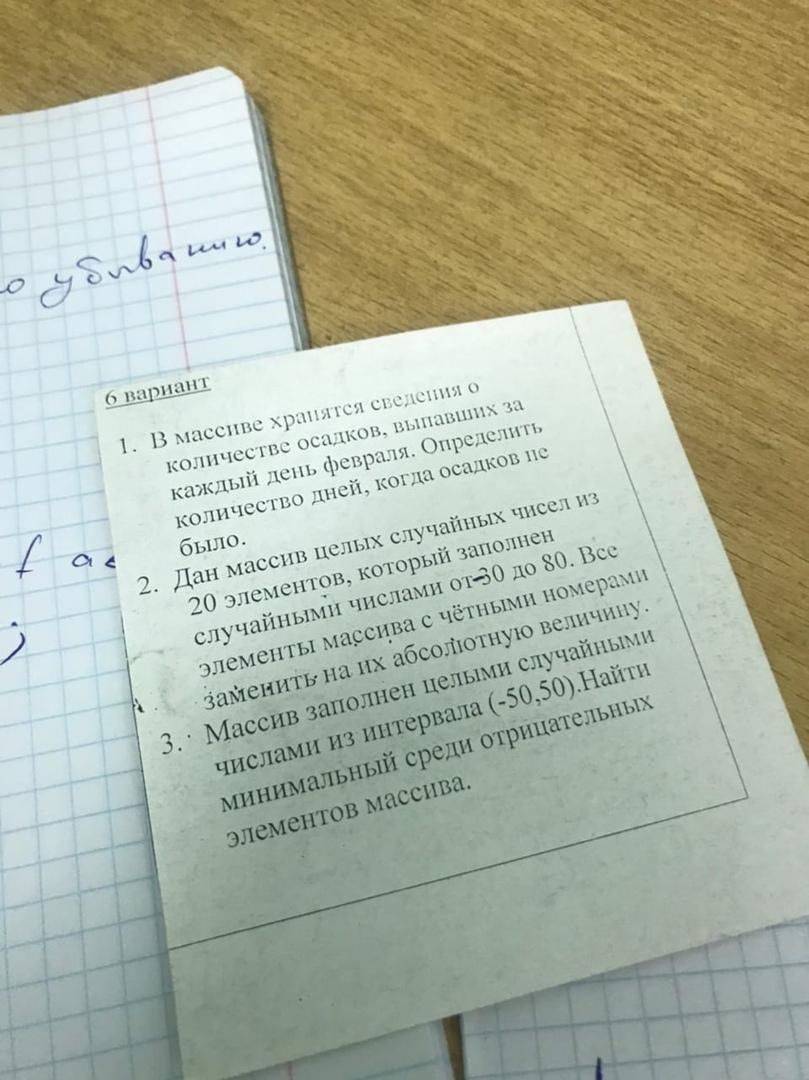 о убыванию.
6 вариант
1. В массиве хранятся сведения о
количестве осадков, выпавших за
каждый день февраля. Определить
количество дней, когда осадков не
было.
2. Дан массив целых случайных чисел из
20 элементов, который заполнен
случайными числами от -30 до 80. Все
элементы массива с чётными номерами
заменить на их абсолютную величину.
3. Массив заполнен целыми случайными
числами из интервала (-50,50).Найти
минимальный среди отрицательных
элементов массива.